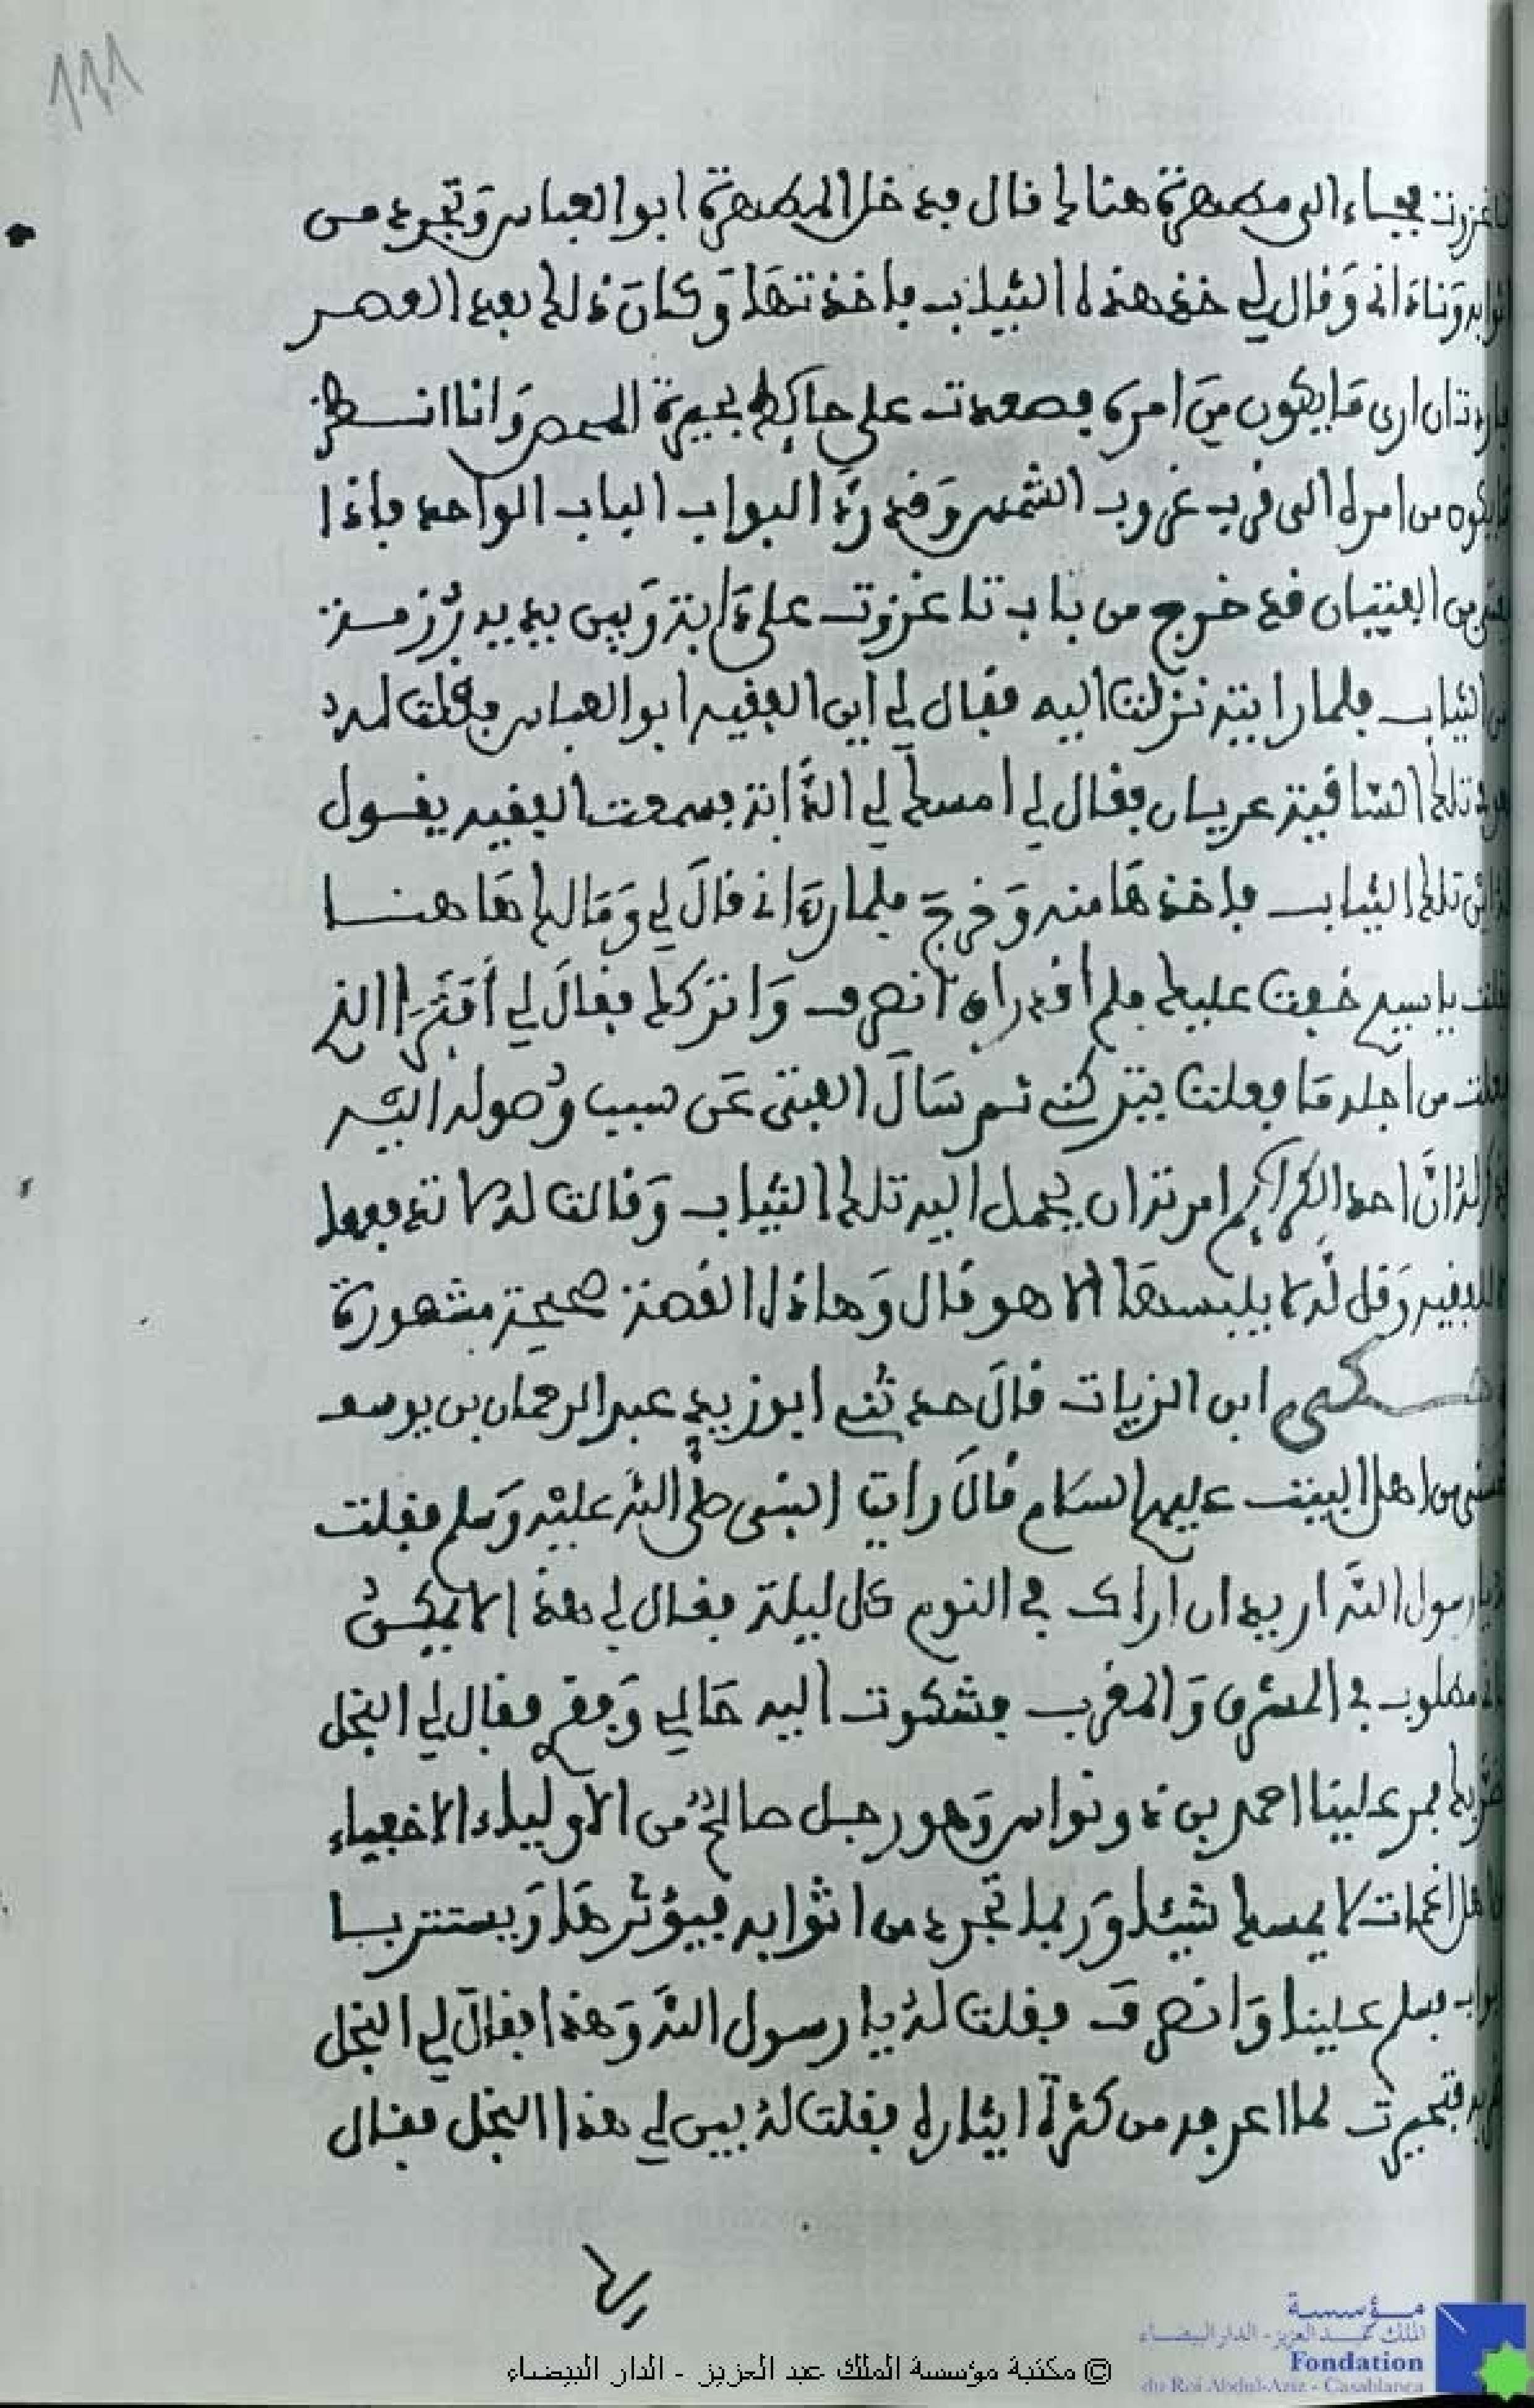 111
تاغزوت فجاء الى مطهرة هناك فال فدخل المطهرة ابوا العباس وتجرد من
اثوابه وناداني وفال لي خذ هذه الثياب فاخذتها وكان ذالك بعد العصر
فاردت ان ارى ما يكون من امره فصعدت على حايط بحيرة وانا انتظر
ما يكون من امره الى فرب غروب الشمس وفد رد البواب الباب الواحد فاذا
بفتى من الفتيان فد خرج من باب تاغزوت على دابة وبين يديه رزمة
من الثياب فلما رايته نزلت اليه ففال لي اين الففيه ابوا العباس ففلت له
هو في تلك السافية عريان ففال لي امسك لي الدابة فسمعت الففيه يفول
له اين تلك الثياب فاخذها منه وخرج فلما رءاني فال لي ومالك هاهنا
ففلت يا سيدي خفت عليك فلم افدر ان انصرف واتركك ففال لي افترى الذي
فعلت من اجله ما فعلت يتركني ثم سال الفتى عن سبب وصوله اليه
فذكر له ان احد الكرايم امرته ان يحمل اليه تلك الثياب وفالت له لا تدفعها
الا للففيه وفل له لا يلبسها الا هو فال وهاذه الفصة صحيحة مشهورة
وحكى ابن الزيات فال حدثني ابو زيد عبد الرحمان بن يوسف
الحسني من اهل البيت عليهم السلام فال رايت النبي صلى الله عليه وسلم ففلت
له يا رسول الله اريد ان اراك في النوم كل ليلة ففال لي هذا لا يمكن
فاني مطلوب في المشرق والمغرب فشكوت اليه حالي وففري ففال لي البخل
اضر بك فمر علينا احمد بن دوناس وهو رجل صالح من الاولياء الاخفياء
من اهل اغمات لا يمسك شيئا وربما تجرد من اثوابه فيؤثر بها ويستتر
فسلم علينا وانصرف ففلت له يا رسول الله وهذا ففال لي البخل
اضر به فتحيرت لما اعرفه من كثرة ايثاره ففلت له بين لي هذا البخل ففال
لي
© مكتبة مؤسسة الملك عبد العزيز - الدار البيضاء
مؤسسة
الملك عبد العزيز - الدار البيضاء
Fondation
du Roi Abdul-Aziz - Casablanca